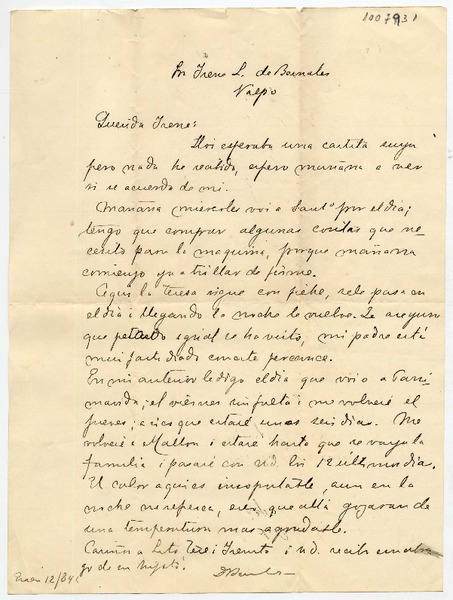 1007931
Sra Irene L. de Bernales
Valpo
Querida Irene:
Hoi esperaba una cartita suya
pero nada he recibido, espero mañana a ver
si se acuerda de mi.
Mañana miercoles voi a Santo por el dia;
tengo que comprar algunas cositas que ne-
cesito para la maquina, porque mañana
comienzo ya a trillar de firme.
Aqui la Teresa sigue con fiebre, se le pasa en
el dia i llegando la noche le vuelve. Le aseguro
que igual se ha visto, mi padre está
mui fastidiado con este percance.
En mi anterior le digo el dia que voi a
el viernes sin falta i me volveré el
jueves; asi es que estaré unos seis dias. Me
volveré a Mallon i estaré hasta que se vaya la
familia i pasaré con Ud. los 12 últimos dias.
El calor aqui es insoportable, aun en la
noche no refresca, creo que allá gozaran de
una temperatura mas agradable.
Cariños a Lito, Tere i Irenita i Ud. recibe un abra
zo de su
Enero 12/84